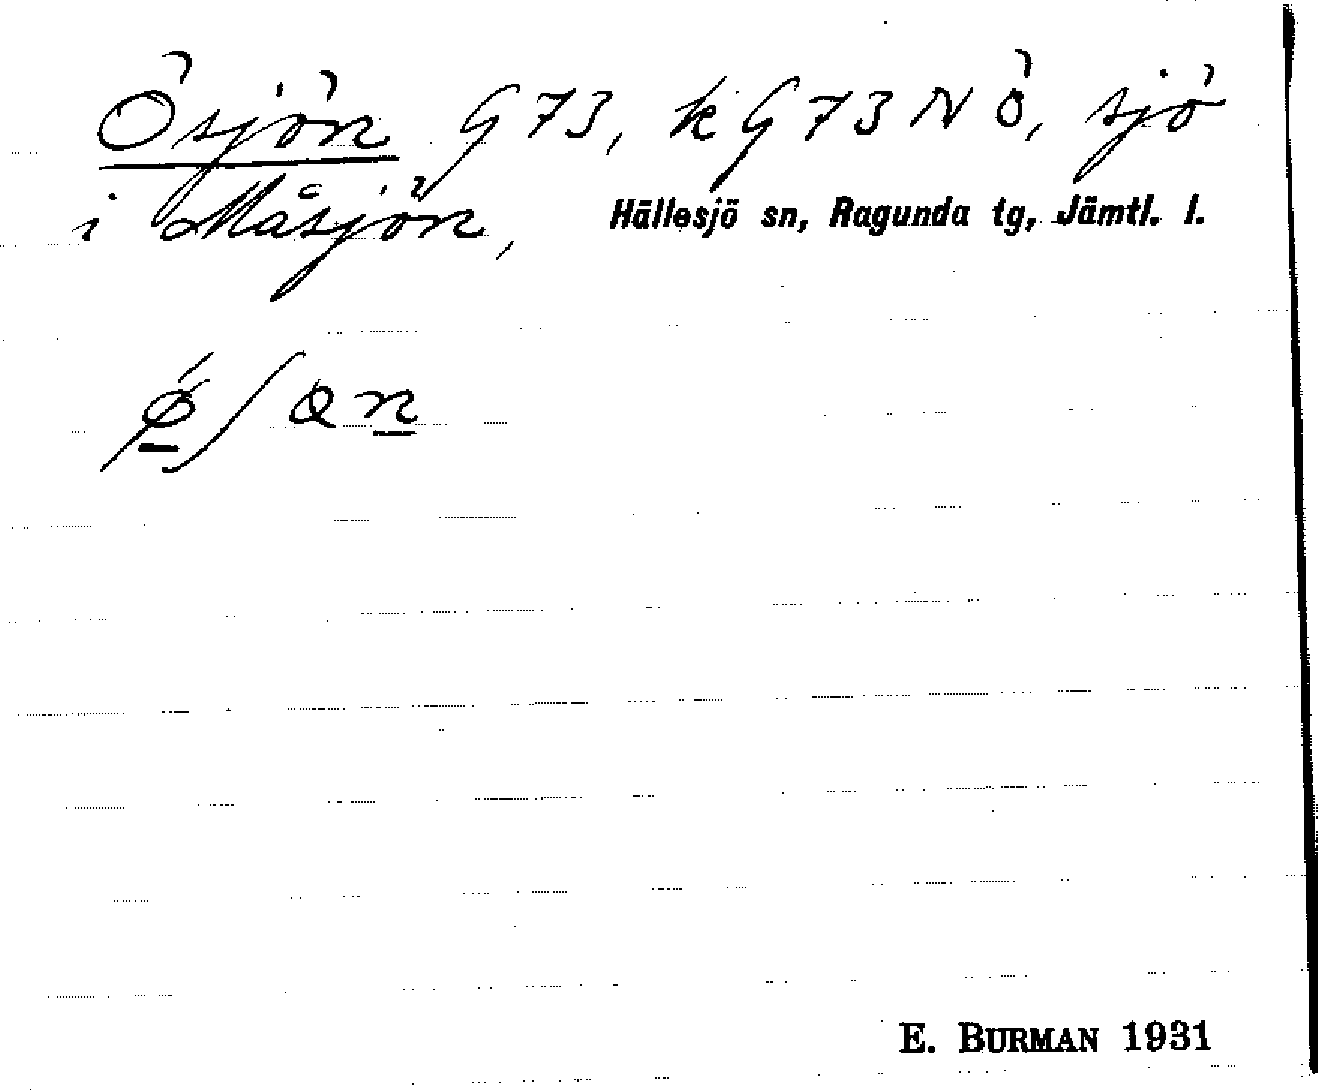 Ösjön G 73, k G 73 N Ö, sjö
i Måsjön, Hällesjö sn, Ragunda tg, Jämtl. l.
E. BURMAN 1931